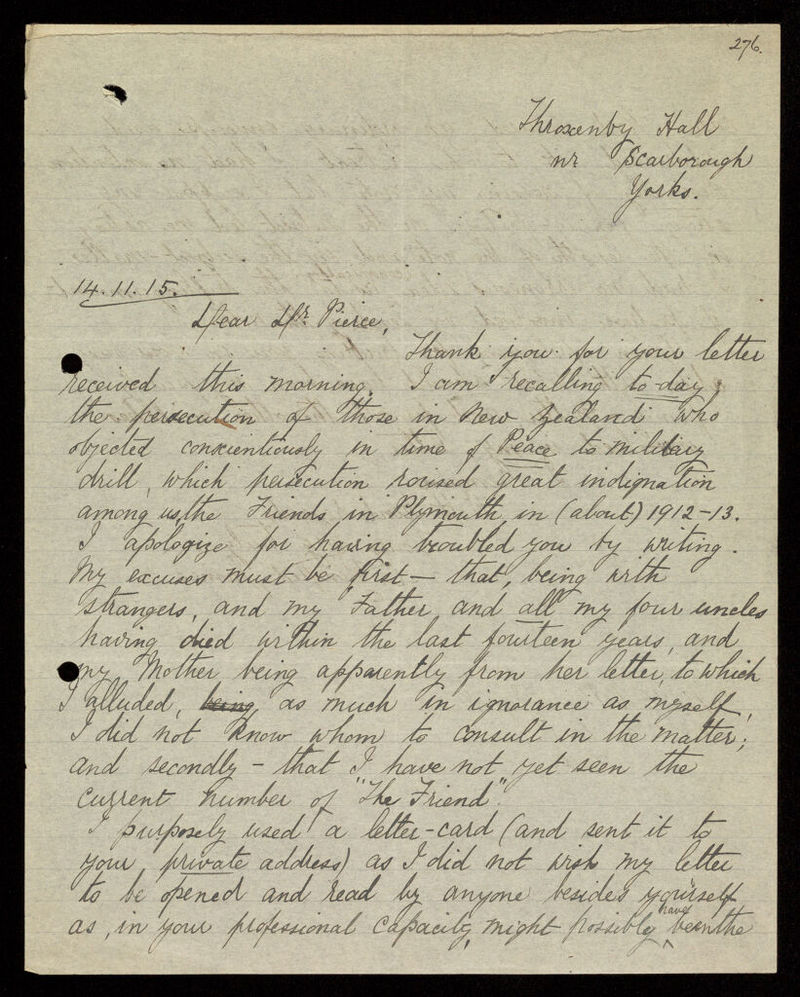 276.
Throxenby Hall
nr Scarborough
Yorks.
14.11.15.
Dear Mr. Pierce,
Thank you for your letter
received this morning. I am recalling to-day,
the persecution of those in New Zealand who
objected conscientiously in time of Peace to military
drill, which persecution roused great indignation
among us, the Friends in Plymouth, in (about) 1912-13.
I apologize for having troubled you by writing.
My excuses must be first — that, being with
strangers, and my Father, and all my four uncles
having died within the last fourteen years, and
my Mother being apparently from her letter, to which
I alluded, being as much in ignorance as myself,
I did not know whom to consult in the matter;
and secondly - that I have not yet seen the
current number of "The Friend".
I purposely used a letter-card (and sent it to
your private address) as I did not wish my letter
to be opened and read by anyone besides yourself
as, in your professional capacity, might possibly have been the